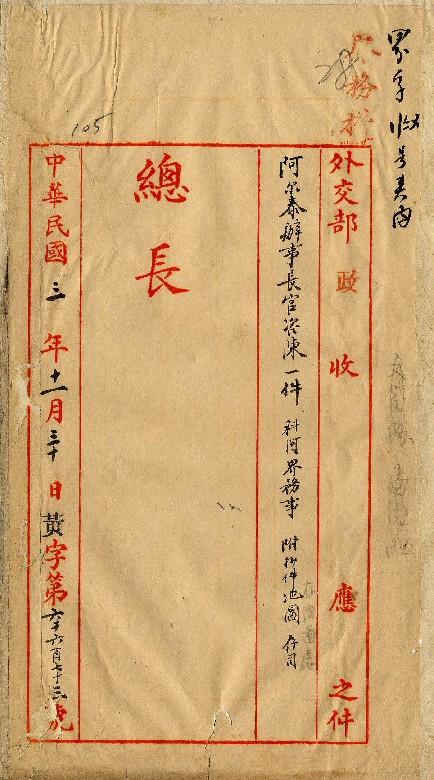 界字收号其函
外交部政收應之件
阿尔泰辦事長官咨陳一件 科阿界務事 附抄件地圖 存司
總長
中華民國三年十一月三十日黃字第六千六百七十三號
105